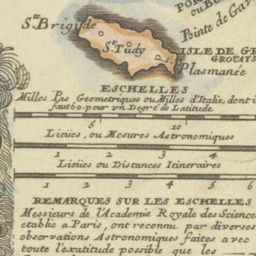 POR
ou B
Pointe de Ga
Ste Brigide
St Tudy
ISLE DE GR
GROUAYS
Plasmanée
ESCHELLES
Milles Pas Geometriques ou Milles d'Italie, dont i
faut 60 pour vn Degré de Latitude
5 10
Lieües, ou Mesures Astronomiques
1 2 3
Lieües ou Distances Itineraires
1 2 3 4
REMARQUES SUR LES ESCHELLES
Messieurs de l'Academie Royale des Science
etablie a Paris, ont reconnu par diverses
observations Astronomiques faites avec
toute l'exatitude possible que les